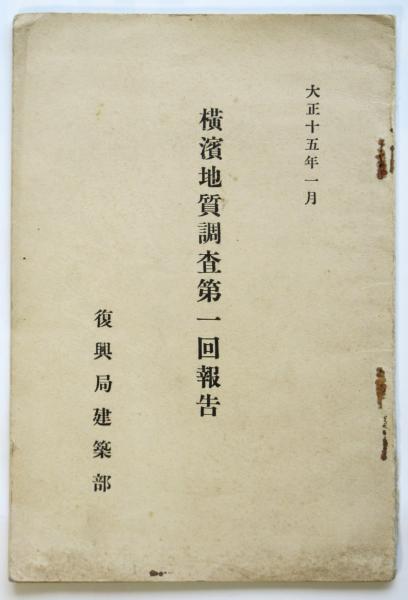 大正十五年一月
橫濱地質調査第一回報告
復興局建築部